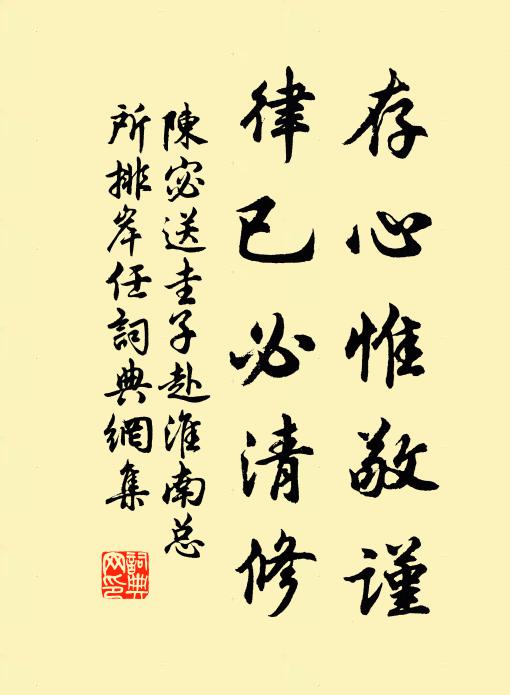 存心惟敬謹
律已必清修
陳宓送圭子赴淮南总
所排岸任詞典網集
詞典
网印